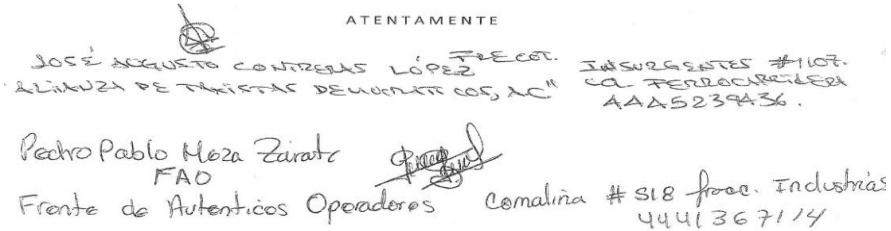 ATENTAMENTE
JOSÉ AUGUSTO CONTRERAS LÓPEZ
INSURGENTES #1107.
ALIANZA DE TAXISTAS DEMOCRATICOS, AC"
COL FERROCARRILERA
Pedro Pablo Meza Zárate
FAO
Frente de Autenticos Operadores
Comalina # 518 fracc. Industrias
4441367114